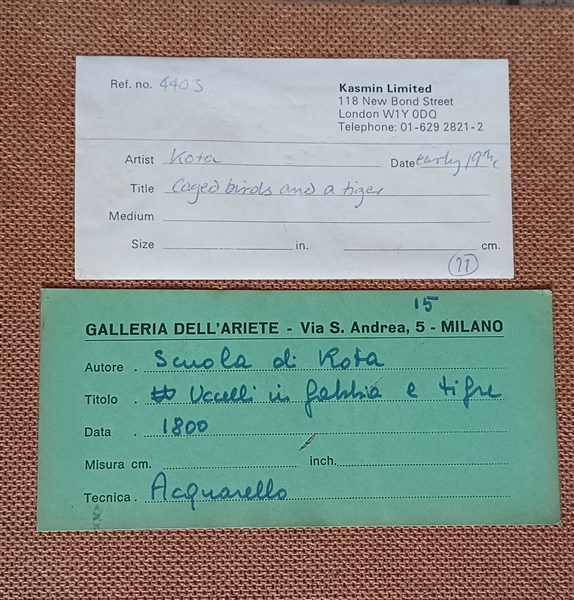 Ref. no. 4403
Kasmin Limited
118 New Bond Street
London W1Y 0DQ
Telephone: 01-629 2821-2
Artist Kota Date early 19th c
Title Caged birds and a tiger
Medium
Size in. cm.
15
GALLERIA DELL'ARIETE - Via S. Andrea, 5 - MILANO
Autore . Scuola di Kota
Titolo . Uccelli in gabbia e tigre
Data . 1800
Misura cm. inch.
Tecnica . Acquarello